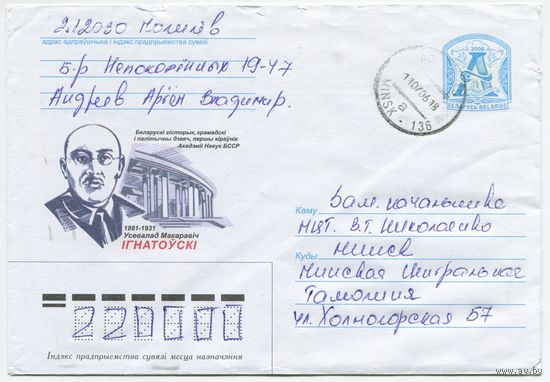 212030 Могилёв
адрас адпраўшчыка і індэкс прадпрыемства сувязі
б-р Непокорённых 19-47
Андреев Артём Владимир.
2006
А
БЕЛАРУСЬ BELARUS
MINSK - 136
11.07.06.18
а
Беларускі гісторык, грамадскі
і палітычны дзеяч, першы кіраўнік
Акадэміі Навук БССР
1881-1931
Усевалад Макаравіч
ІГНАТОЎСКІ
Каму Зам. начальника
МЦТ. В.Т. Николаенко
Куды Минск
Минская Центральная
Таможня
ул. Холмогорская 57
Індэкс прадпрыемства сувязі месца назначэння
www.ay.by